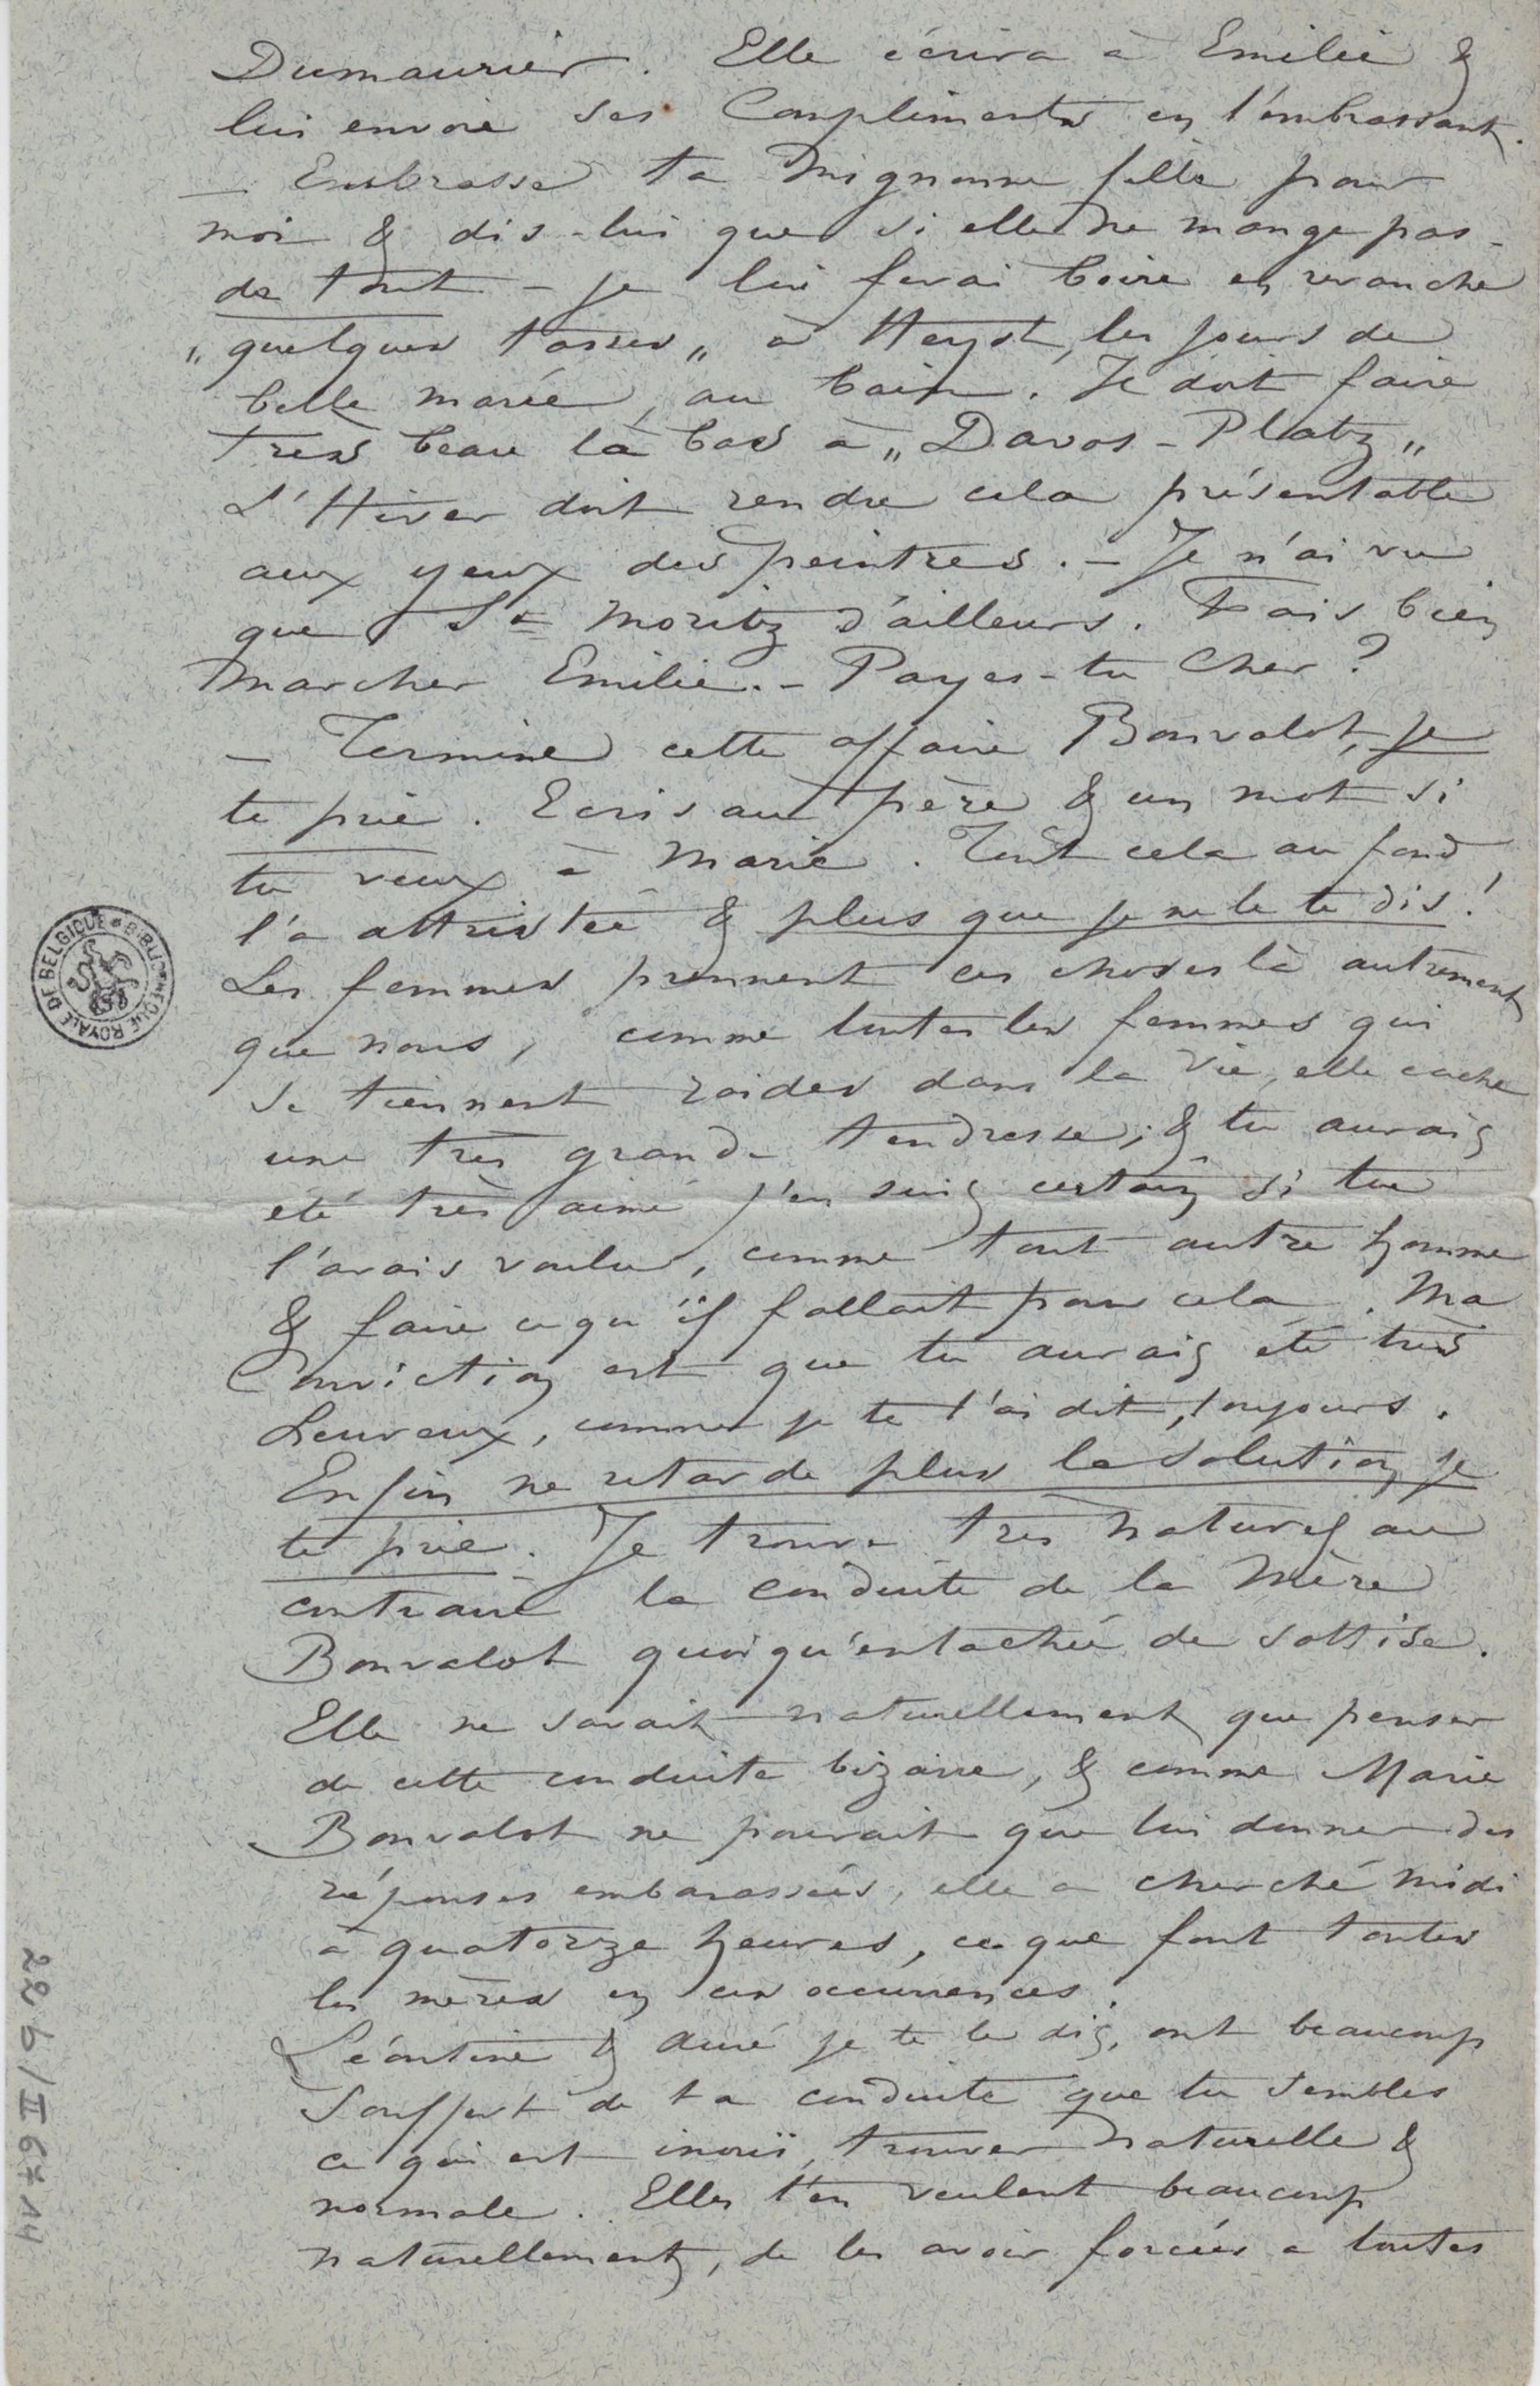 Dumaurier. Elle écrira à Emilie &
lui envoie ses Compliments en l'embrassant.
— Embrasse ta mignonne fille pour
moi & dis-lui que si elle ne mange pas-
de tout - je lui ferai boire en revanche
„quelques tasses„ à Heyst, les jours de
belle marée, au bain. Il doit faire
très beau là bas à „Davos-Platz„
L'Hiver doit rendre cela présentable
aux yeux des peintres. - Je n'ai vu
que St Moritz d'ailleurs. Fais bien
marcher Emilie. - Payes-tu Cher ?
— Termine cette affaire Bonvalot, je
te prie. Ecris au père & un mot si
tu veux à Marie. Tout cela au fond,
l'a attristée & plus que je ne le te dis !
Les femmes prennent ces choses là autrement
que nous, comme toutes les femmes qui
se tiennent roides dans la vie, elle cache
une très grande tendresse; & tu aurais
été très aimé j'en suis certain si tu
l'avais voulu, comme tout autre homme
& faire ce qu'il fallait pour cela. Ma
Conviction est que tu aurais été très
heureux, comme je te l'ai dit, toujours.
Enfin ne retarde plus la solution je
te prie. - Je trouve très naturel au
contraire la conduite de la Mère
Bonvalot quoiqu'entachée de sottise.
Elle ne savait naturellement que penser
de cette conduite bizarre, & comme Marie
Bonvalot ne pouvait que lui donner des
réponses embarassées, elle a cherché midi
à quatorze heures, ce que font toutes
les mères en ces occurrences.
Léontine & Auré je te le dis, ont beaucoup
souffert de ta conduite que tu sembles
ce qui est inouï, trouver naturelle &
normale. Elles t'en veulent beaucoup
naturellement, de les avoir forcées a toutes
BIBLIOTHEQUE ROYALE DE BELGIQUE
22 b/II 6714